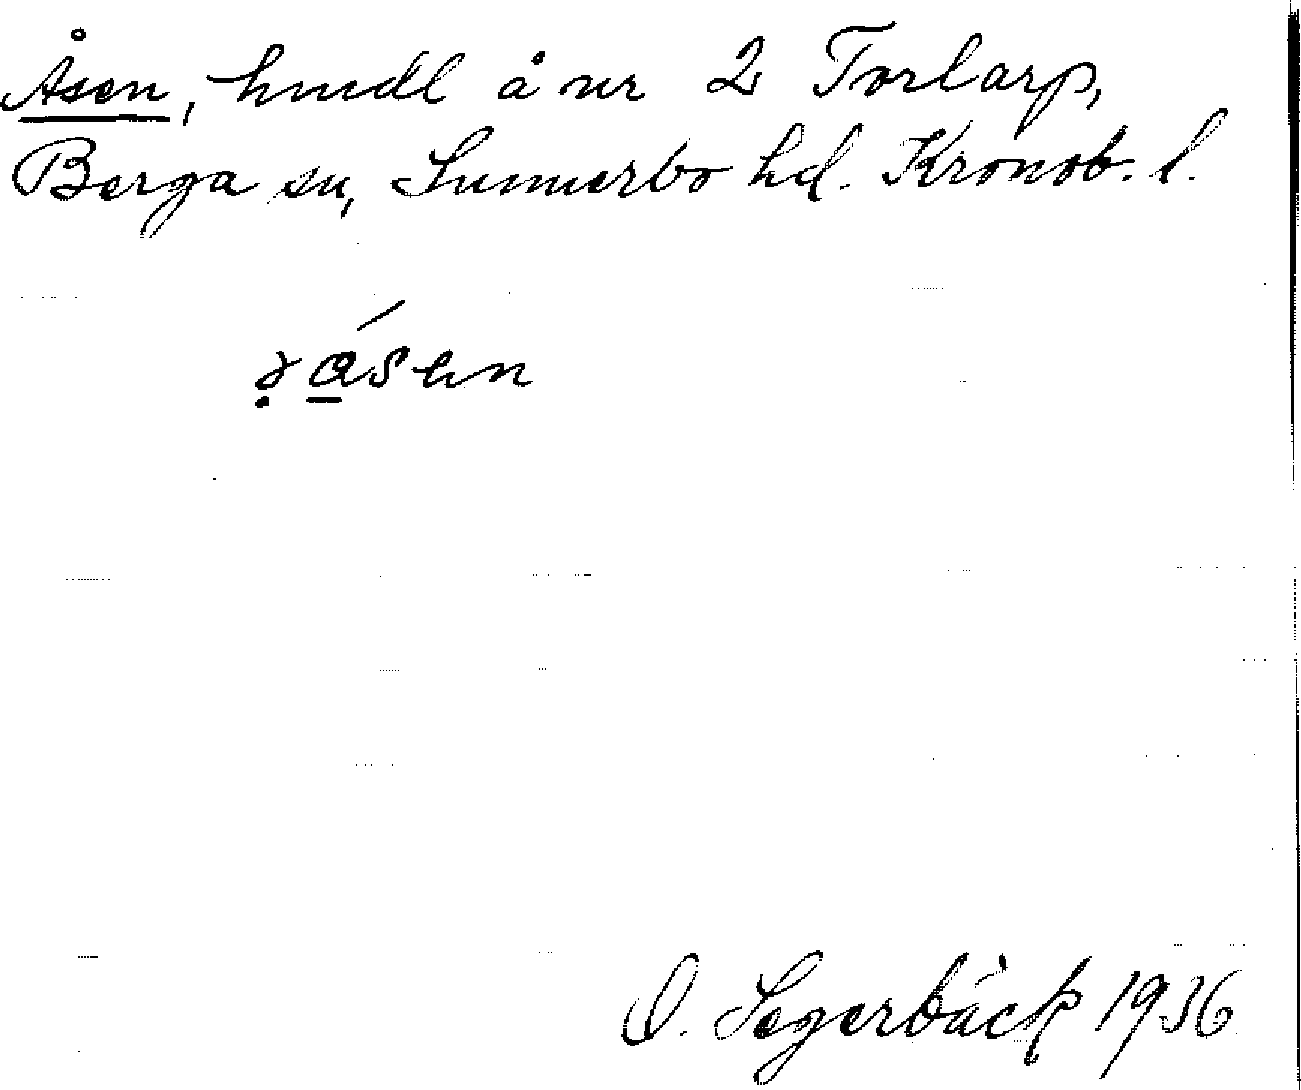 Åsen, hmdl å nr 2 Torlarp,
Berga sn, Sunnerbo hd. Kronob. l.
åsen
O. Segerbäck 1936